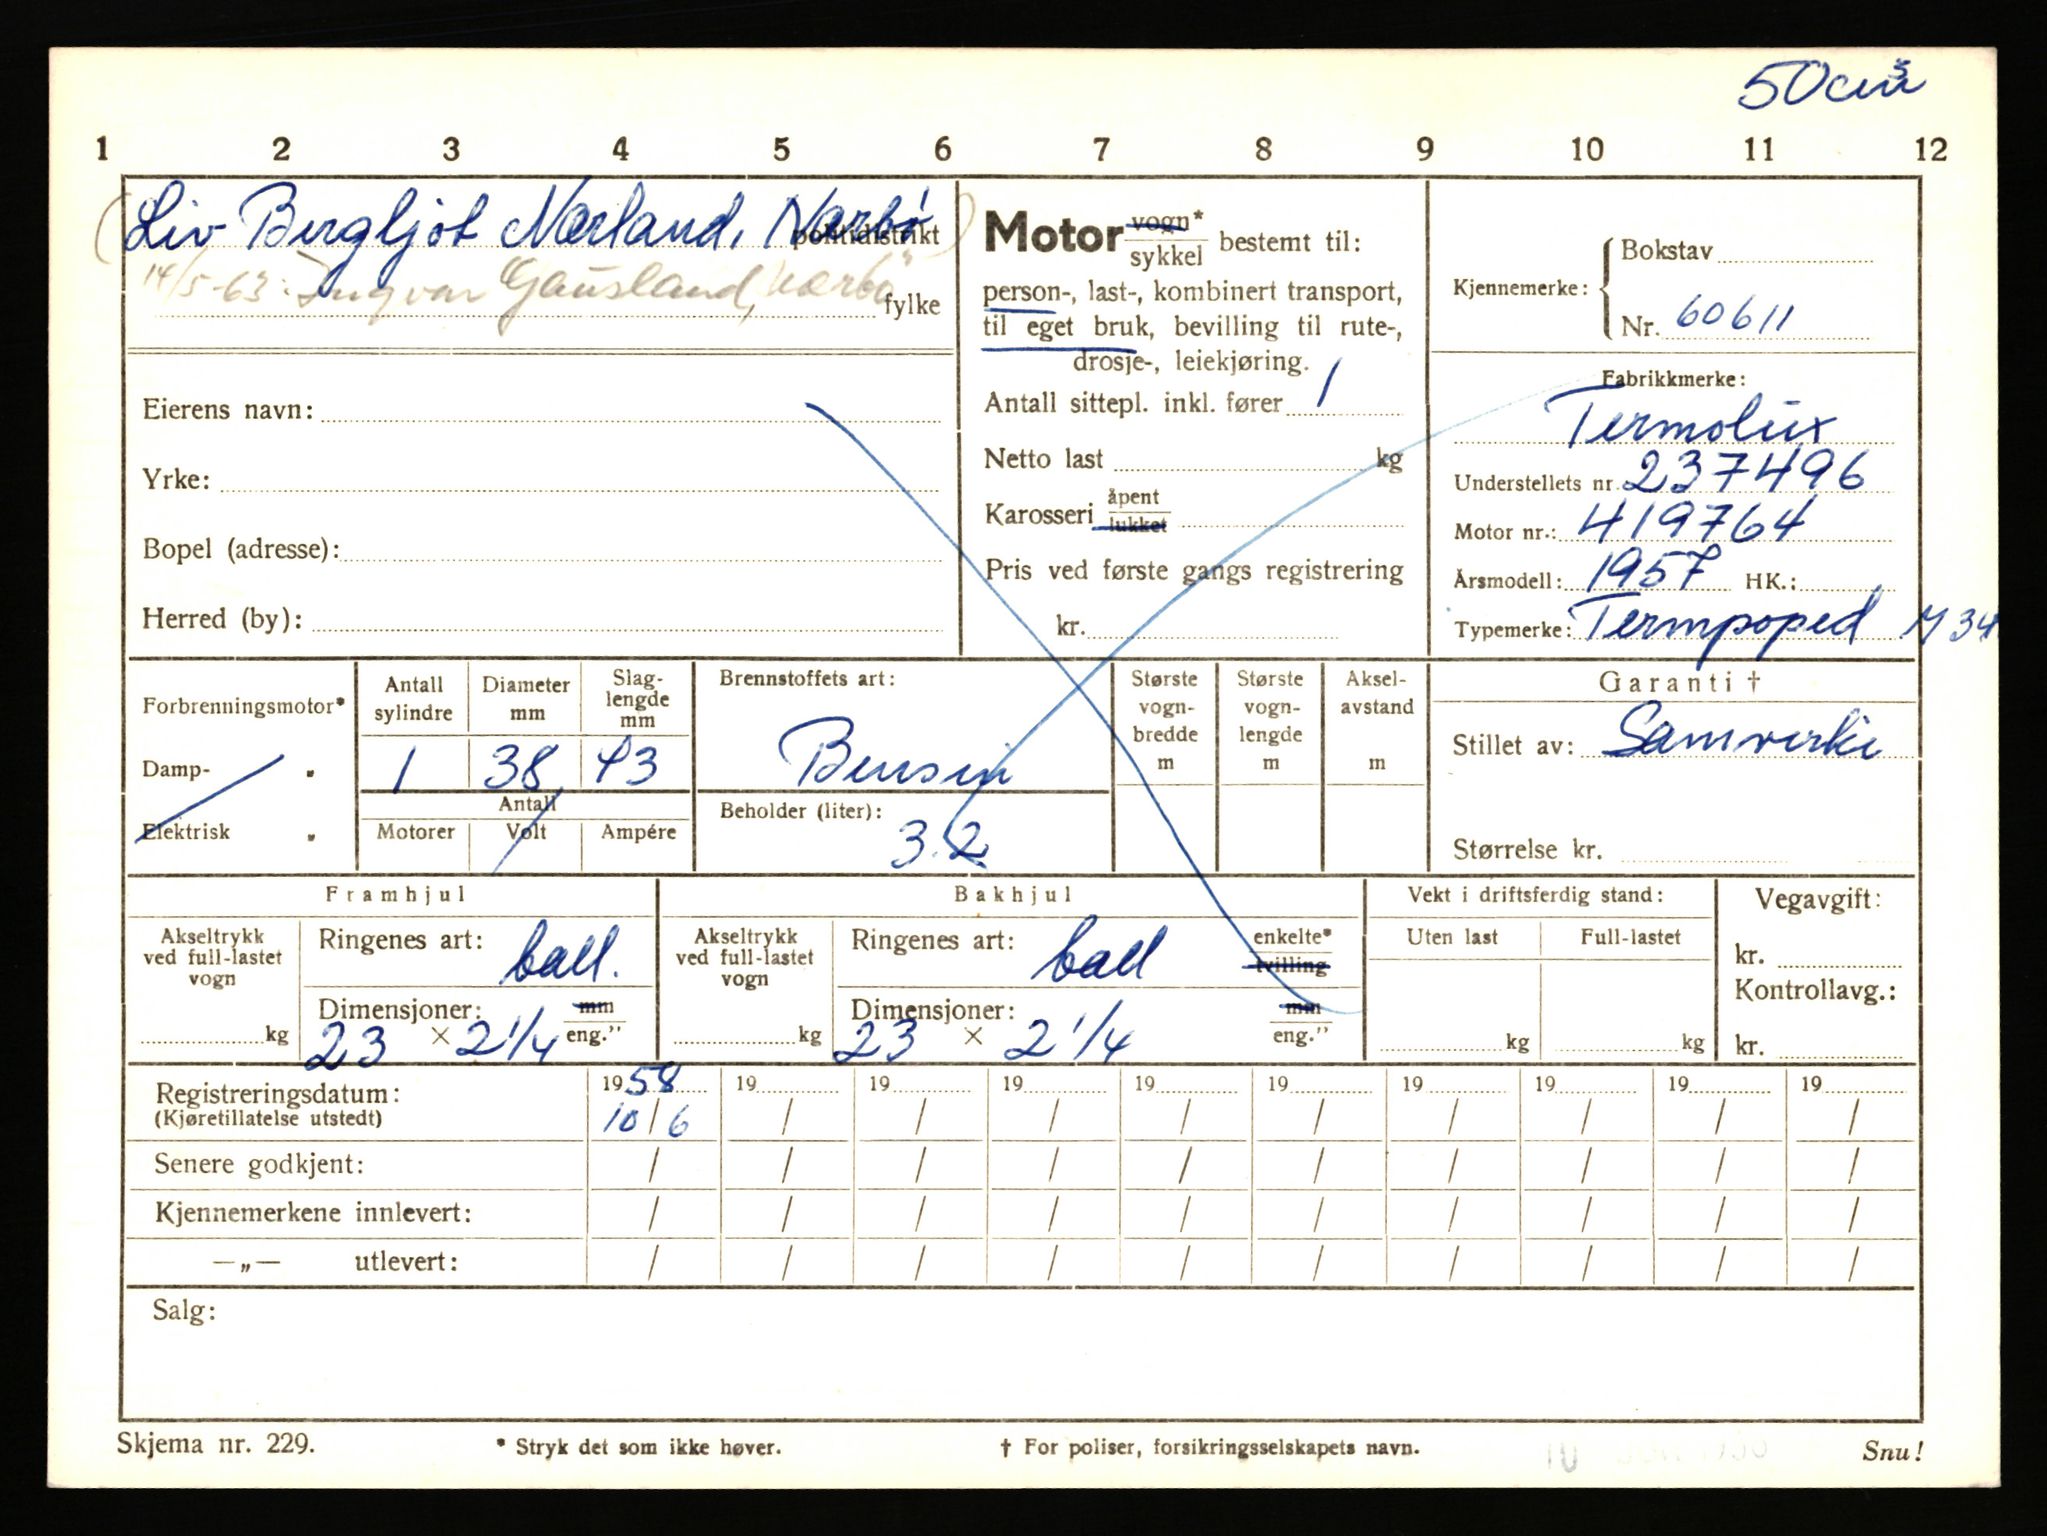 50 cm³
1 2 3 4 5 6 7 8 9 10 11 12
(Liv Bergljot Nærland, Nærbø) politidistrikt
14/5-63. Ingvar Gausland, Nærbø fylke
Eierens navn:
Yrke:
Bopel (adresse):
Herred (by):
Motor vogn* / sykkel bestemt til:
person-, last-, kombinert transport,
til eget bruk, bevilling til rute-,
drosje-, leiekjøring.
Antall sittepl. inkl. fører 1
Netto last kg
Karosseri åpent / lukket
Pris ved første gangs registrering
kr.
Kjennemerke: Bokstav
Nr. 60611
Fabrikkmerke:
Termolux
Understellets nr. 237496
Motor nr.: 419764
Årsmodell: 1957 HK.:
Typemerke: Termpoped M 34
Forbrenningsmotor*
Damp- "
Elektrisk "
Antall sylindre
1
Diameter mm
38
Slag-lengde mm
43
Antall
Motorer Volt Ampére
Brennstoffets art:
Bensin
Beholder (liter):
3.2
Største vogn-bredde m
Største vogn-lengde m
Aksel-avstand m
Garanti †
Stillet av: Samvirke
Størrelse kr.
Framhjul
Akseltrykk ved full-lastet vogn
kg
Ringenes art: ball.
Dimensjoner: mm / eng."
23 × 2 1/4
Bakhjul
Akseltrykk ved full-lastet vogn
kg
Ringenes art: ball enkelte* / tvilling
Dimensjoner: mm / eng."
23 × 2 1/4
Vekt i driftsferdig stand:
Uten last Full-lastet
kg kg
Vegavgift:
kr.
Kontrollavg.:
kr.
Registreringsdatum: 1958 19 19 19 19 19 19 19 19 19
(Kjøretillatelse utstedt) 10/6 / / / / / / / / /
Senere godkjent: / / / / / / / / / /
Kjennemerkene innlevert: / / / / / / / / / /
—„— utlevert: / / / / / / / / / /
Salg:
Skjema nr. 229. * Stryk det som ikke høver. † For poliser, forsikringsselskapets navn. Snu!